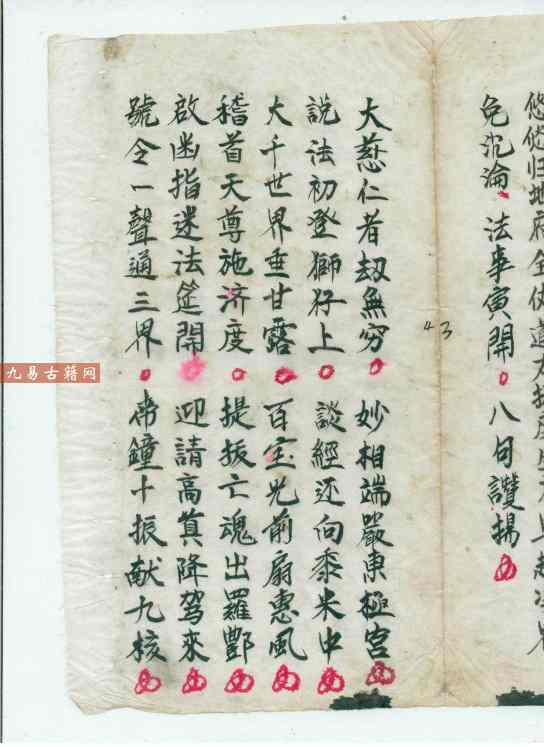 悠悠归地府全仗
免沉淪 法事寅開 八句讚揚
43
大慈仁者劫無穷 妙相端嚴東極宮
説法初登獅猊上 談經还向黍米中
大千世界垂甘露 百宝光前扇惠風
稽首天尊施济度 提拔亡魂出羅酆
啟函指迷法筵開 迎請高真降驾來
號令一聲通三界 帝鐘十振献九核
九易古籍网